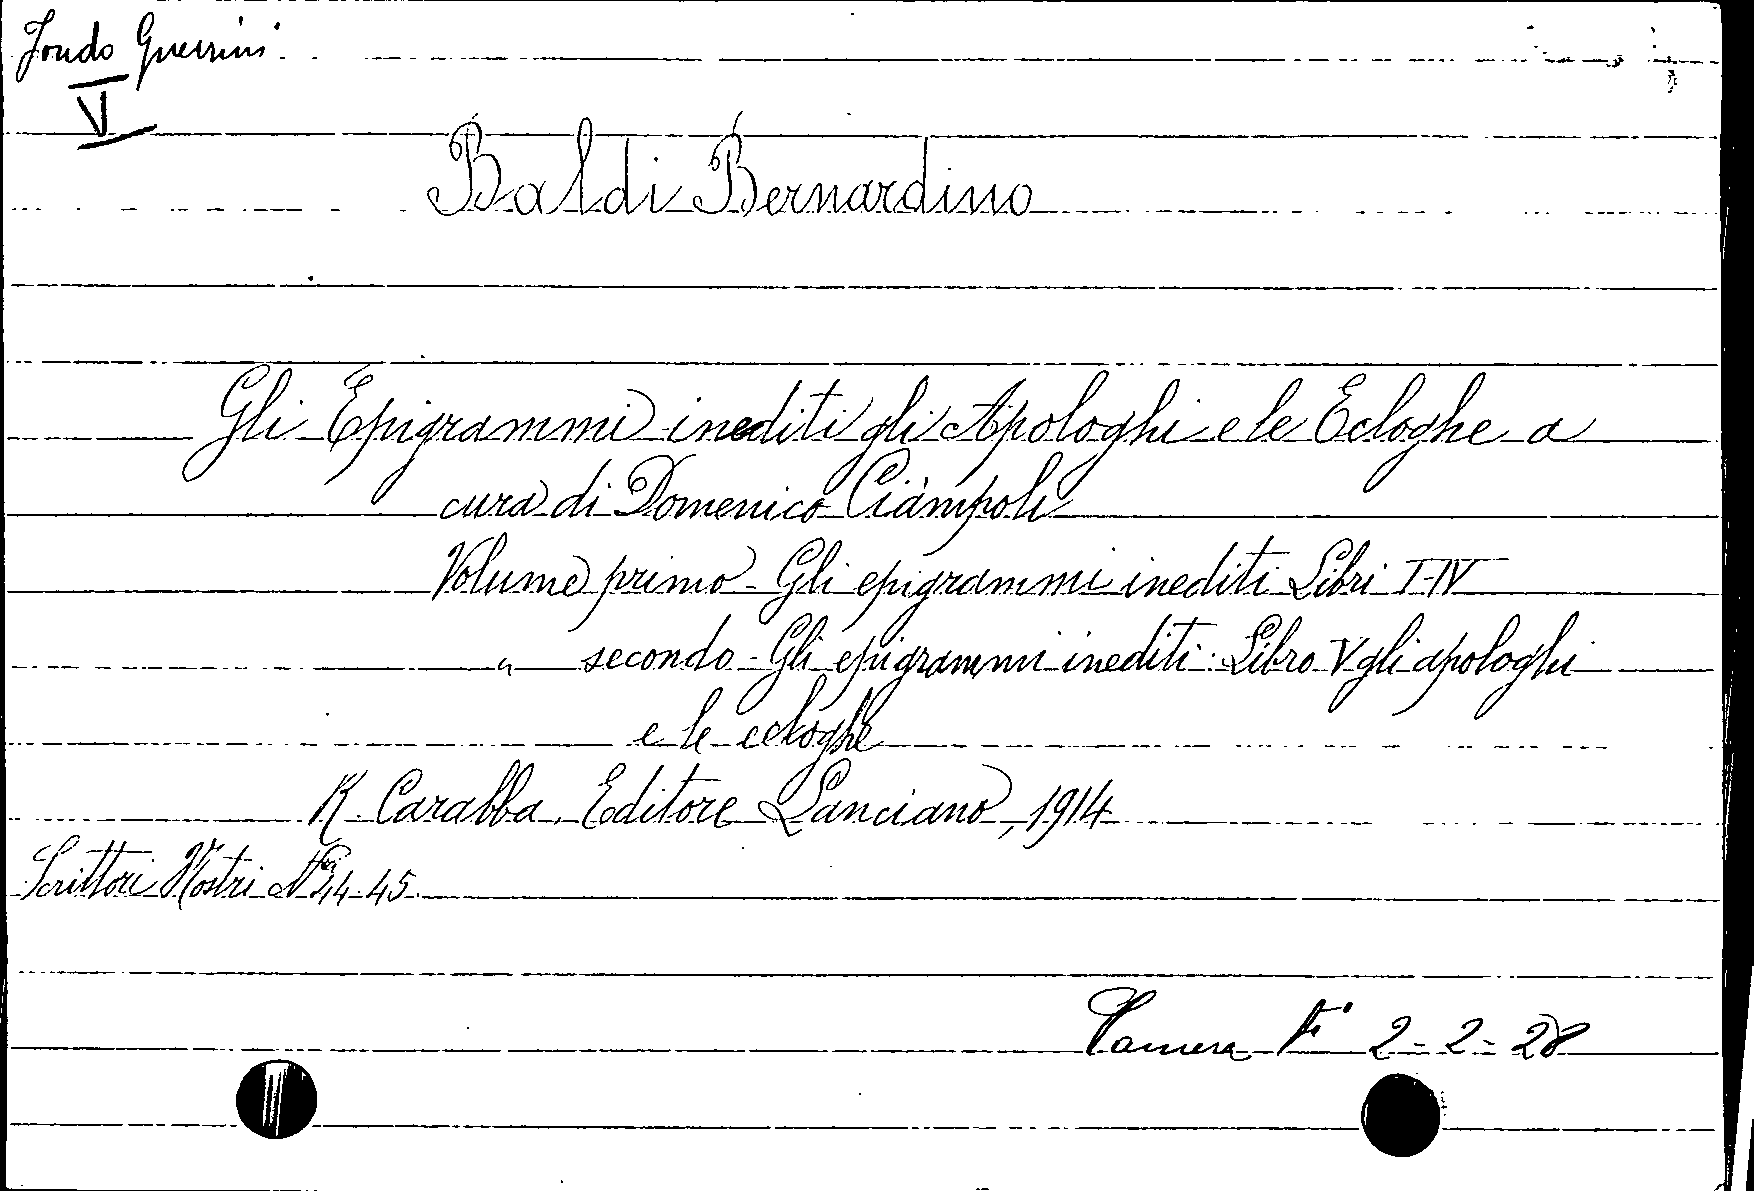 Fondo Guerrini
V
Baldi Bernardino
Gli Epigrammi inediti gli Apologhi e le Ecloghe a
cura di Domenico Ciàmpoli
Volume primo - Gli epigrammi inediti Libri I-IV
" secondo - Gli epigrammi inediti. Libro V gli apologhi
e le ecloghe
R. Carabba, Editore Lanciano, 1914
Scrittori Nostri Nri 44-45
Camera F. 2-2-28